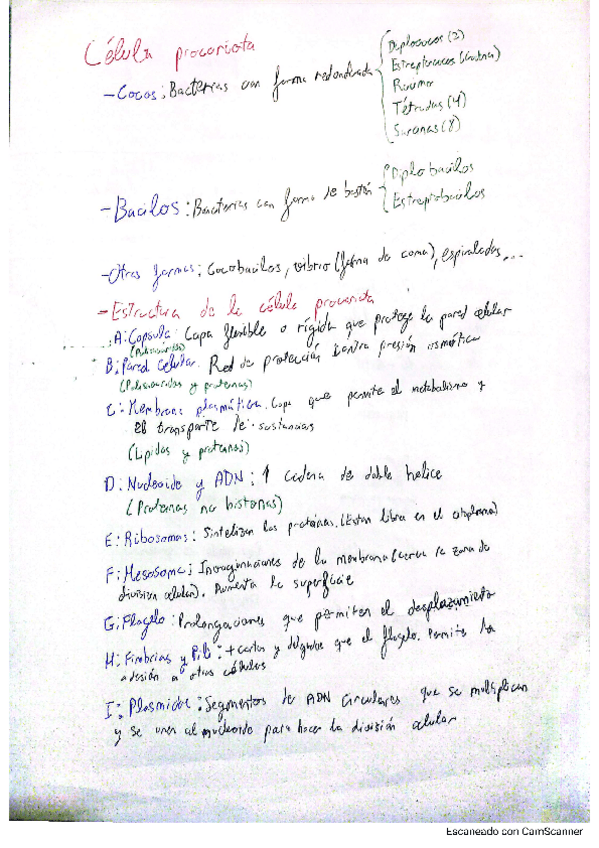 Célula procariota
- Cocos: Bacterias con forma redondeada
Diplococos (2)
Estreptococos (Cadena)
Racimo
Tétradas (4)
Sarcinas (8)
- Bacilos: Bacterias con forma de bastón
Diplobacilos
Estreptobacilos
- Otras formas: Cocobacilos, vibrio (forma de coma), espirilados...
- Estructura de la célula procariota
A: Capsula: Capa flexible o rígida que protege la pared celular
(Polisacaridos)
B: Pared celular. Red de protección contra presión osmótica
(Polisacaridos y proteinas)
C: Membrana plasmática. Capa que permite el metabolismo y
el transporte de sustancias
(Lipidos y proteinas)
D: Nucleoide y ADN: 1 cadena de doble helice
(Proteinas no histonas)
E: Ribosomas: Sintetizan las proteinas. (Estan libres en el citoplasma)
F: Mesosoma: Invaginaciones de la membrana (cerca la zona de
division celular). Aumenta la superficie
G: Flagelo: Prolongaciones que permiten el desplazamiento
H: Fimbrias y Pili: + cortos y delgados que el flagelo. Permite la
adesión a otras células
I: Plasmidos: Segmentos de ADN circulares que se multiplican
y se unen al nucleoide para hacer la división celular
Escaneado con CamScanner